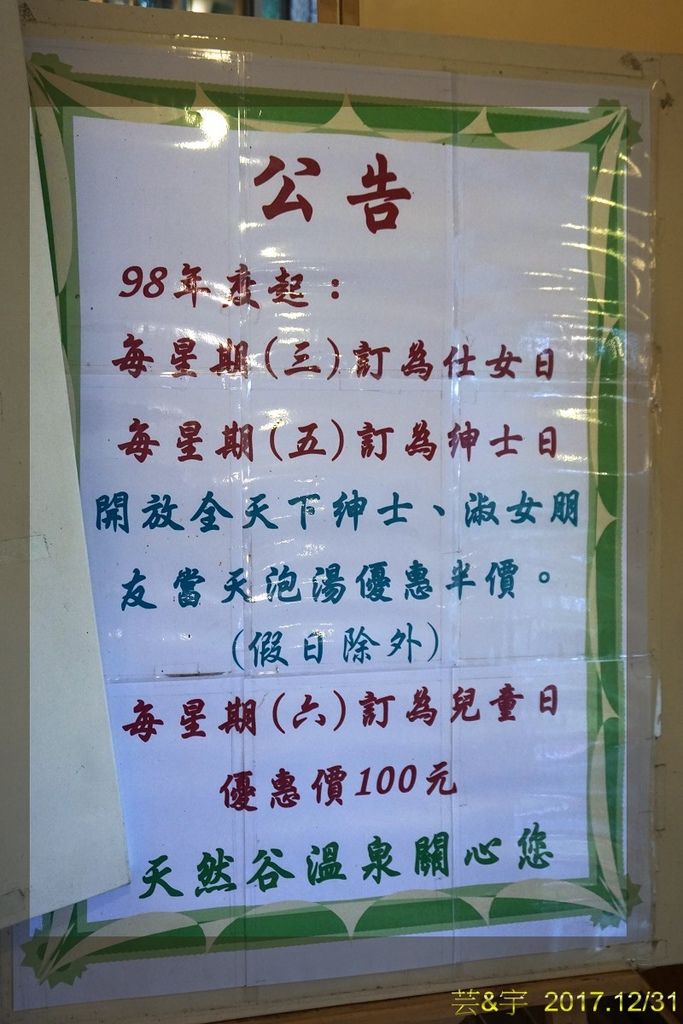 公告
98年度起：
每星期(三)訂為仕女日
每星期(五)訂為紳士日
開放全天下紳士、淑女朋
友當天泡湯優惠半價。
(假日除外)
每星期(六)訂為兒童日
優惠價100元
天然谷溫泉關心您
芸&宇 2017.12/31